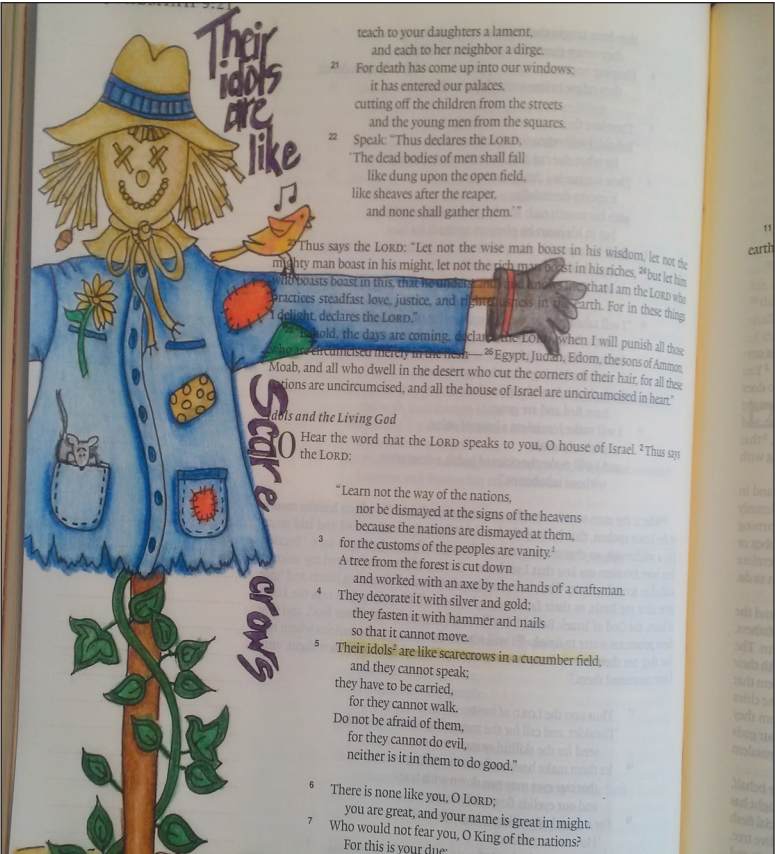 9:21
Their
idols
are
like
Scare crows
teach to your daughters a lament,
and each to her neighbor a dirge.
21 For death has come up into our windows;
it has entered our palaces,
cutting off the children from the streets
and the young men from the squares.
22 Speak: “Thus declares the LORD,
‘The dead bodies of men shall fall
like dung upon the open field,
like sheaves after the reaper,
and none shall gather them.’”
23 Thus says the LORD: “Let not the wise man boast in his wisdom, let not the
mighty man boast in his might, let not the rich man boast in his riches, 24 but let him
who boasts boast in this, that he understands and knows me, that I am the LORD who
practices steadfast love, justice, and righteousness in the earth. For in these things
I delight, declares the LORD.”
25 “Behold, the days are coming, declares the LORD, when I will punish all those
who are circumcised merely in the flesh— 26 Egypt, Judah, Edom, the sons of Ammon,
Moab, and all who dwell in the desert who cut the corners of their hair, for all these
nations are uncircumcised, and all the house of Israel are uncircumcised in heart.”
Idols and the Living God
10 Hear the word that the LORD speaks to you, O house of Israel. 2 Thus says
the LORD:
“Learn not the way of the nations,
nor be dismayed at the signs of the heavens
because the nations are dismayed at them,
3 for the customs of the peoples are vanity.1
A tree from the forest is cut down
and worked with an axe by the hands of a craftsman.
4 They decorate it with silver and gold;
they fasten it with hammer and nails
so that it cannot move.
5 Their idols2 are like scarecrows in a cucumber field,
and they cannot speak;
they have to be carried,
for they cannot walk.
Do not be afraid of them,
for they cannot do evil,
neither is it in them to do good.”
6 There is none like you, O LORD;
you are great, and your name is great in might.
7 Who would not fear you, O King of the nations?
For this is your due;
11
earth